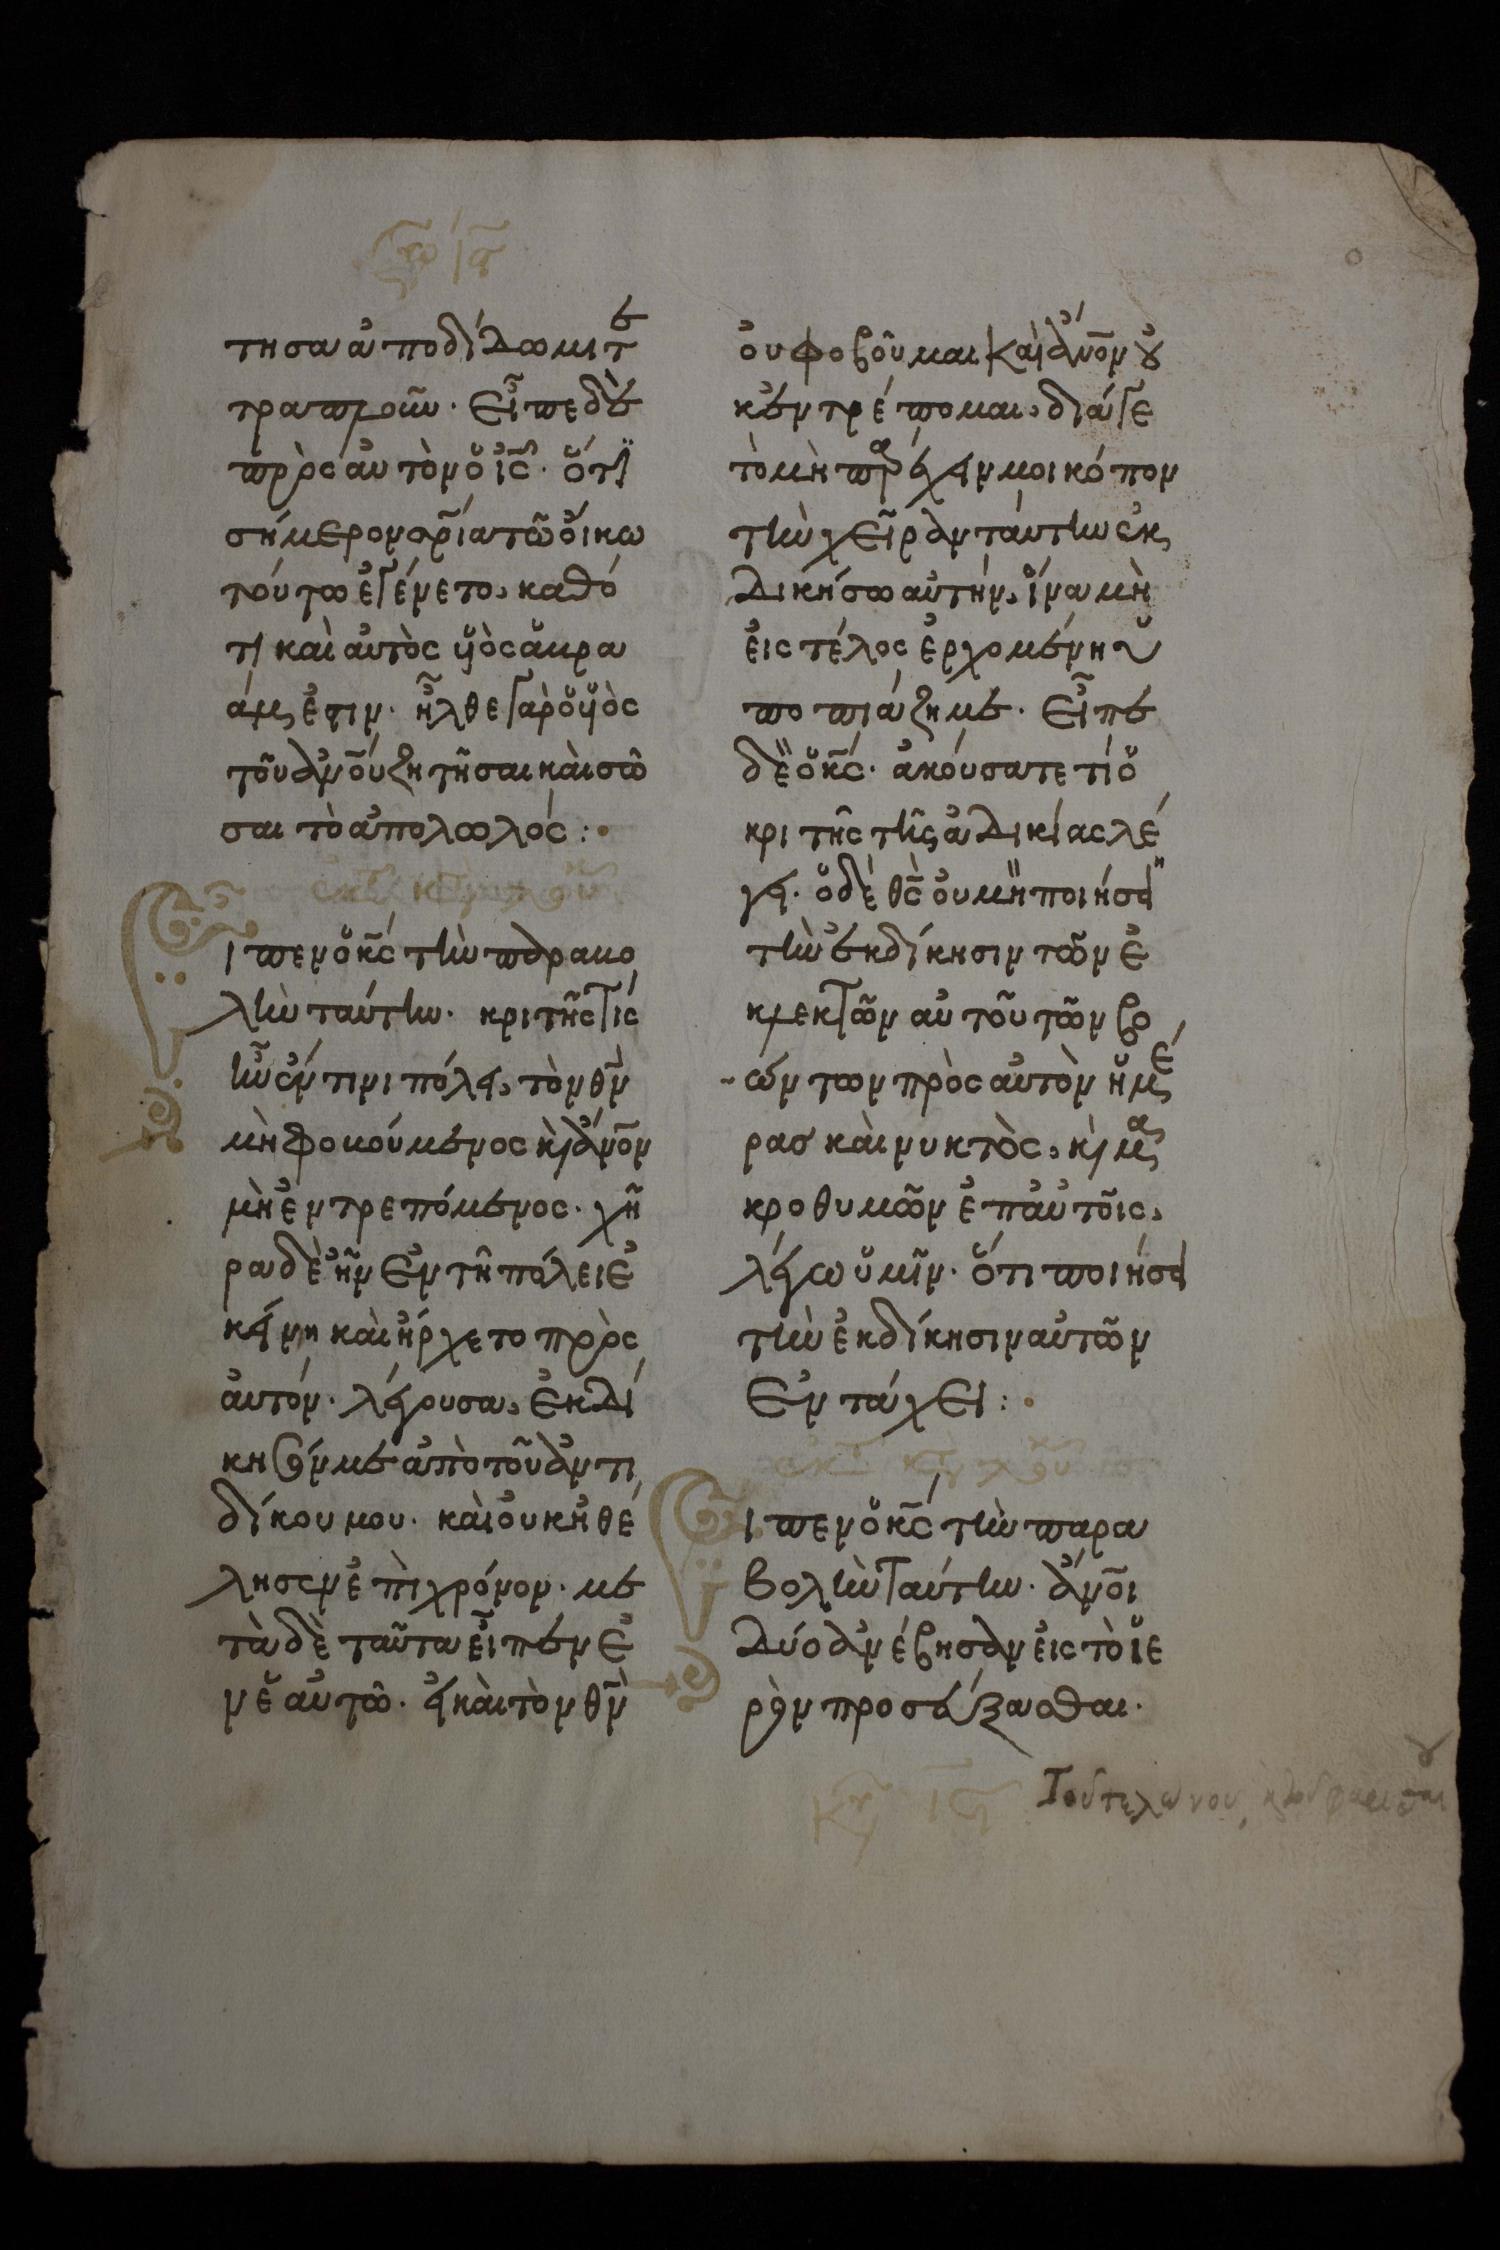 τησα ἀποδίδωμι τε
τραπλοῦν. Εἶπε δὲ
πρὸς αὐτὸν ὁ ις̅. ὅτι
σήμερον σρ̅ία τῶ οἴκω
τούτω ἐγένετο, καθό
τι καὶ αὐτὸς υἱὸς ἀβρα
άμ ἐστιν. ἦλθε γὰρ ὁ υἱὸς
τοῦ ἀν̅ου ζητῆσαι καὶ σῶ
σαι τὸ ἀπολωλός :
Εἶ
ιπεν ὁ κς̅ τὴν παραβο
λὴν ταύτην. κριτής τις
ἦν ἔν τινι πόλει, τὸν θν̅
μὴ φοβούμενος κὶ ἀν̅ον
μὴ ἐντρεπόμενος. χή
ρα δὲ ἦν ἐν τῆ πόλει ἐ
κείνη καὶ ἤρχετο πρὸς
αὐτόν. λέγουσα, ἐκδί
κησόν με ἀπὸ τοῦ ἀντι
δίκου μου. καὶ οὐκ ἠθέ
λησεν ἐπὶ χρόνον. με
τὰ δὲ ταῦτα εἶπεν ἐ
ν ἑαυτῶ. εἰ καὶ τὸν θν̅
οὐ φοβοῦμαι καὶ ἀν̅ον οὐ
κ ἐντρέπομαι, διά γε
τὸ μὴ παρέχειν μοι κόπον
τὴν χεῖραν ταύτην ἐκ
δικήσω αὐτήν, ἵνα μὴ
εἰς τέλος ἐρχομένη ὑ
ποπιάζη με. Εἶπε
δὲ ὁ κς̅. ἀκούσατε τί ὁ
κριτὴς τῆς ἀδικίας λέ
γει. ὁ δέ θς̅ οὐ μὴ ποιήσει
τὴν ἐκδίκησιν τῶν ἐ
κλεκτῶν αὐτοῦ τῶν βο
ώντων πρὸς αὐτὸν ἡμέ
ρας καὶ νυκτὸς, κὶ μα
κροθυμῶν ἐπ αὐτοῖς,
λέγω ὑμῖν. ὅτι ποιήσει
τὴν ἐκδίκησιν αὐτῶν
ἐν τάχει :
ιπεν ὁ κς̅ τὴν παρα
βολὴν ταύτην. ἄν̅οι
δύο ἀνέβησαν εἰς τὸ ἱε
ρὸν προσεύξασθαι.
Τοῦ τελώνου